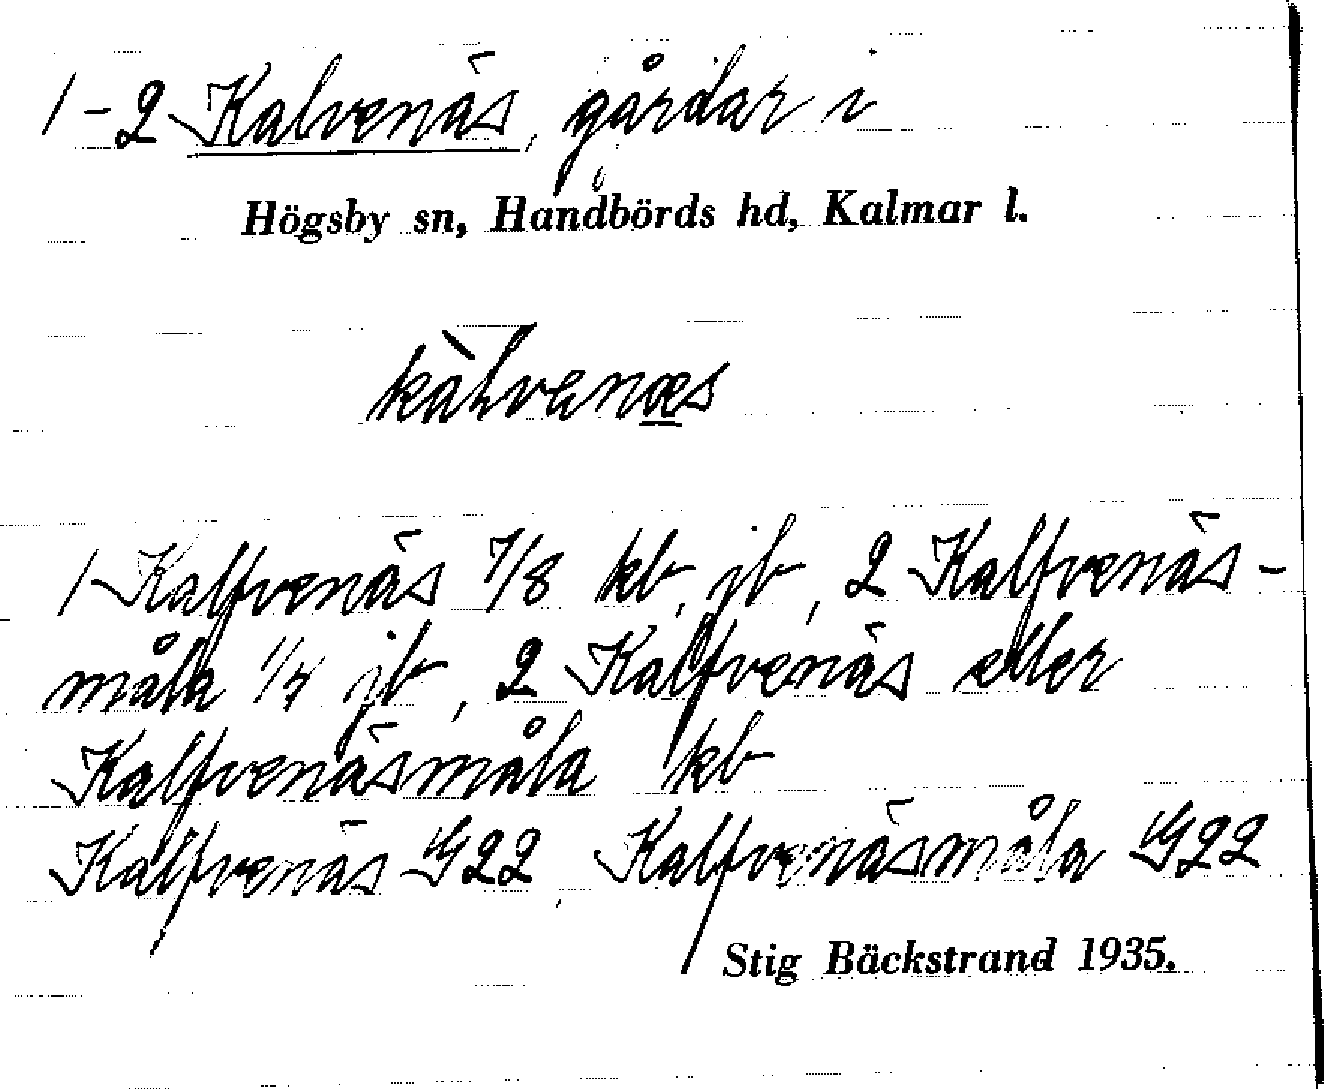 1-2 Kalvenäs, gårdar i
Högsby sn, Handbörds hd, Kalmar l.
kàlvenæs
1 Kalfvenäs 7/8 kb, jb, 2 Kalfvenäs-
måla 1/4 jb, 2 Kalfvenäs eller
Kalfvenäsmåla kb
Kalfvenäs G22, Kalfvenäsmåla G22
Stig Bäckstrand 1935.